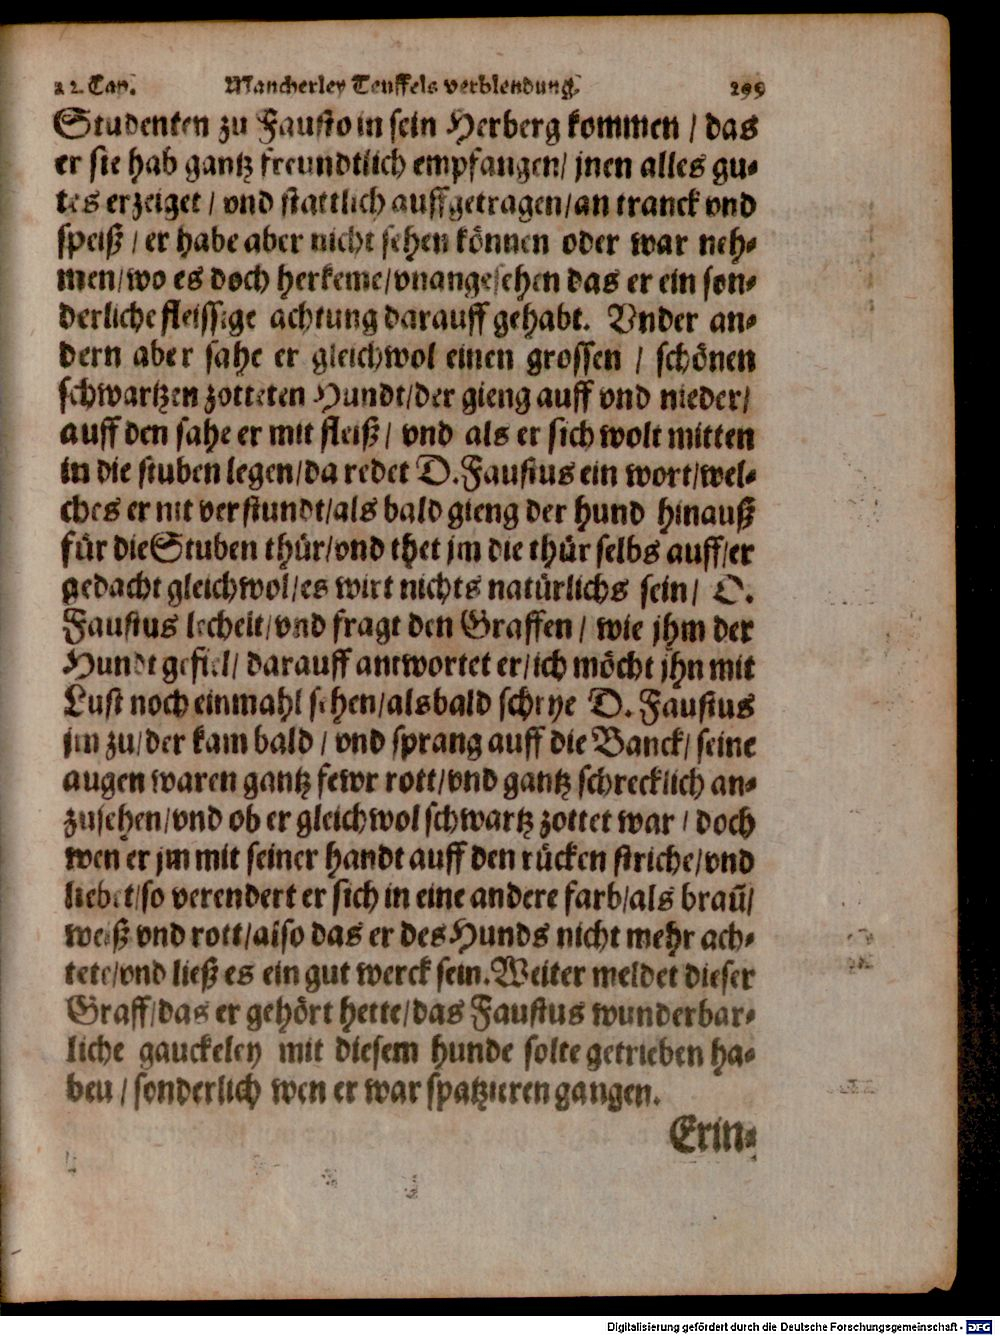 22. Cap. Mancherley Teuffels verblendung. 299
Studenten zu Fausto in sein Herberg kommen / das
er sie hab gantz freundtlich empfangen / jnen alles gu⸗
tes erzeiget / vnd stattlich auffgetragen / an tranck vnd
speiß / er habe aber nicht sehen können oder war neh⸗
men / wo es doch herkeme / vnangesehen das er ein son⸗
derliche fleissige achtung darauff gehabt. Vnder an⸗
dern aber sahe er gleichwol einen grossen / schönen
schwartzen zotteten Hundt / der gieng auff vnd nieder /
auff den sahe er mit fleiß / vnd als er sich wolt mitten
in die stuben legen / da redet D. Faustus ein wort / wel⸗
ches er nit verstundt / als bald gieng der hund hinauß
für die Stuben thür / vnd thet jm die thür selbs auff / er
gedacht gleichwol / es wirt nichts natürlichs sein / D.
Faustus lechelt / vnd fragt den Graffen / wie jhm der
Hundt gefiel / darauff antwortet er / ich möcht jhn mit
Lust noch einmahl sehen / alsbald schrye D. Faustus
jm zu / der kam bald / vnd sprang auff die Banck / seine
augen waren gantz fewr rott / vnd gantz schrecklich an⸗
zusehen / vnd ob er gleichwol schwartz zottet war / doch
wen er jm mit seiner handt auff den rücken striche / vnd
liebet / so verendert er sich in eine andere farb / als braũ /
weiß vnd rott / also das er des Hunds nicht mehr ach⸗
tete / vnd ließ es ein gut werck sein. Weiter meldet dieser
Graff / das er gehört hette / das Faustus wunderbar⸗
liche gauckeley mit diesem hunde solte getrieben ha⸗
ben / sonderlich wen er war spatzieren gangen.
Erin⸗
Digitalisierung gefördert durch die Deutsche Forschungsgemeinschaft - DFG